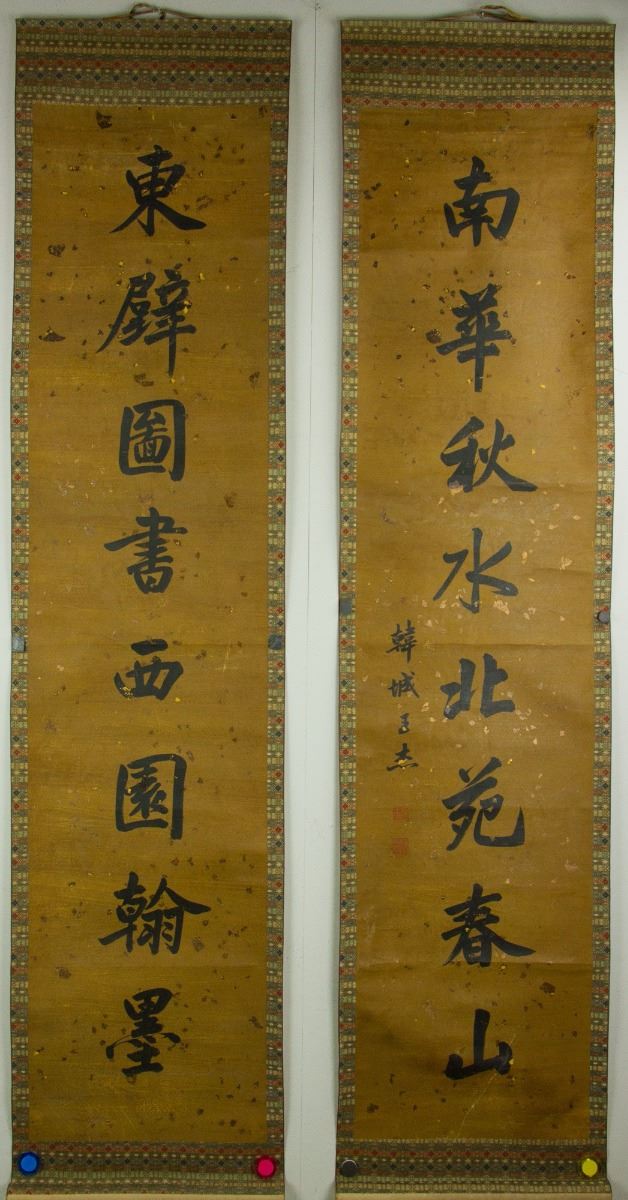 東辟圖書西園翰墨
南華秋水北苑春山
韓城王杰